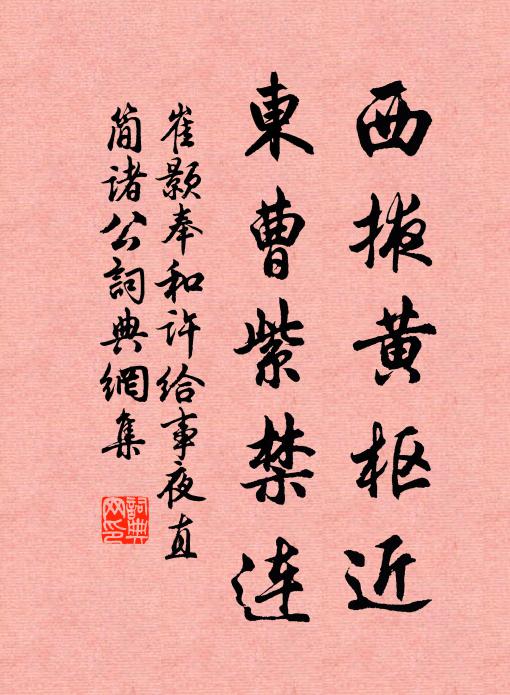 西掖黄枢近
東曹紫禁连
崔颢奉和许给事夜直
简诸公詞典網集
詞典網印